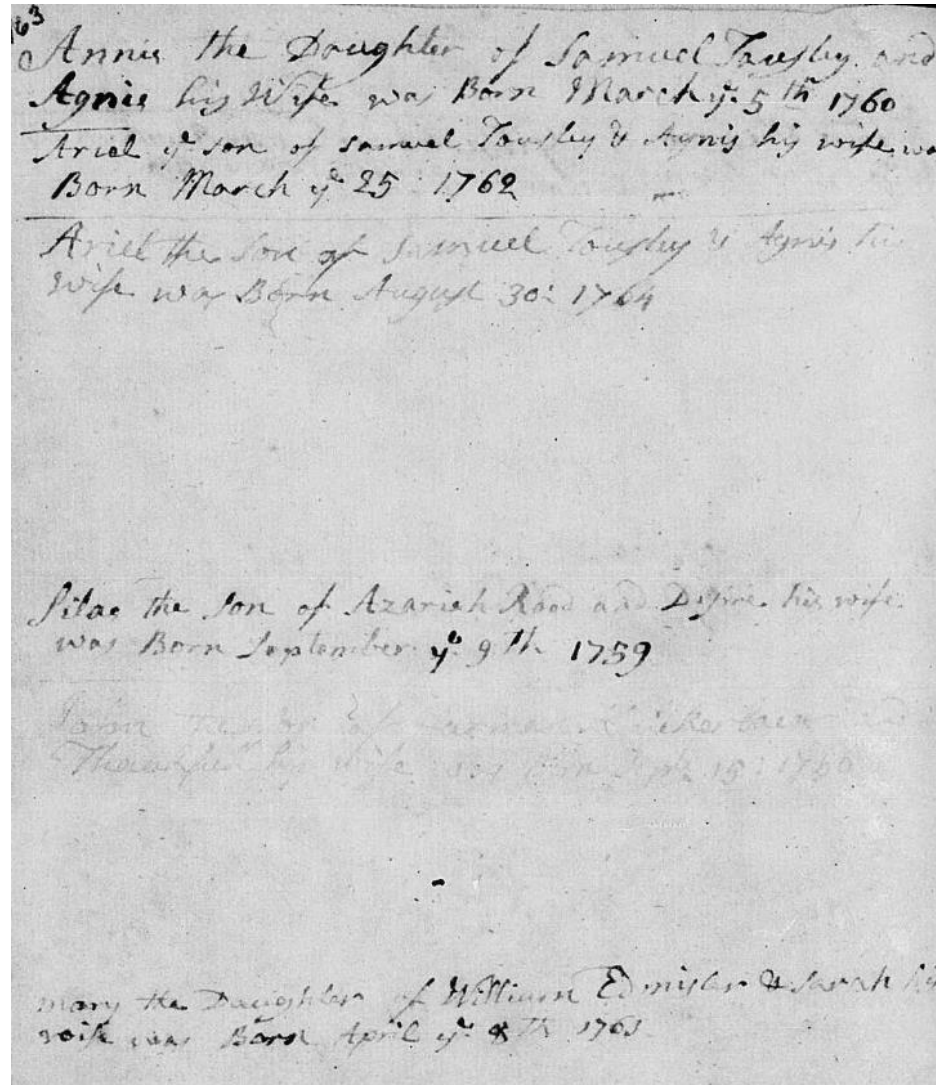 163
Annis the Daughter of Samuel Tousley and
Agnis his Wife was Born March ye 5th 1760
Ariel ye son of Samuel Tousley & Agnis his wife was
Born March ye 25: 1762
Ariel the Son of Samuel Tousley & Agnis his
Wife was Born August 30: 1764
Silas the Son of Azariah Rood and Desire his wife
was Born September ye 9th 1759
John the son of
Thankfull his Wife was Born Sept 15: 1760
mary the Daughter of William Edmister & Sarah his
wife was Born April ye 8th 1761